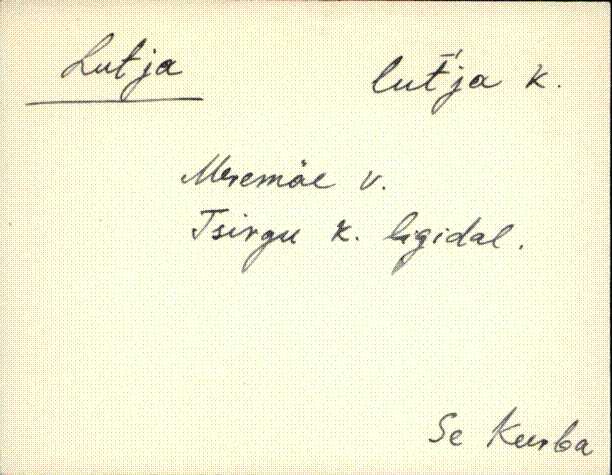 Lutja lut'ja k.
Meremäe v.
Tsirgu k. ligidal.
Se Kurba